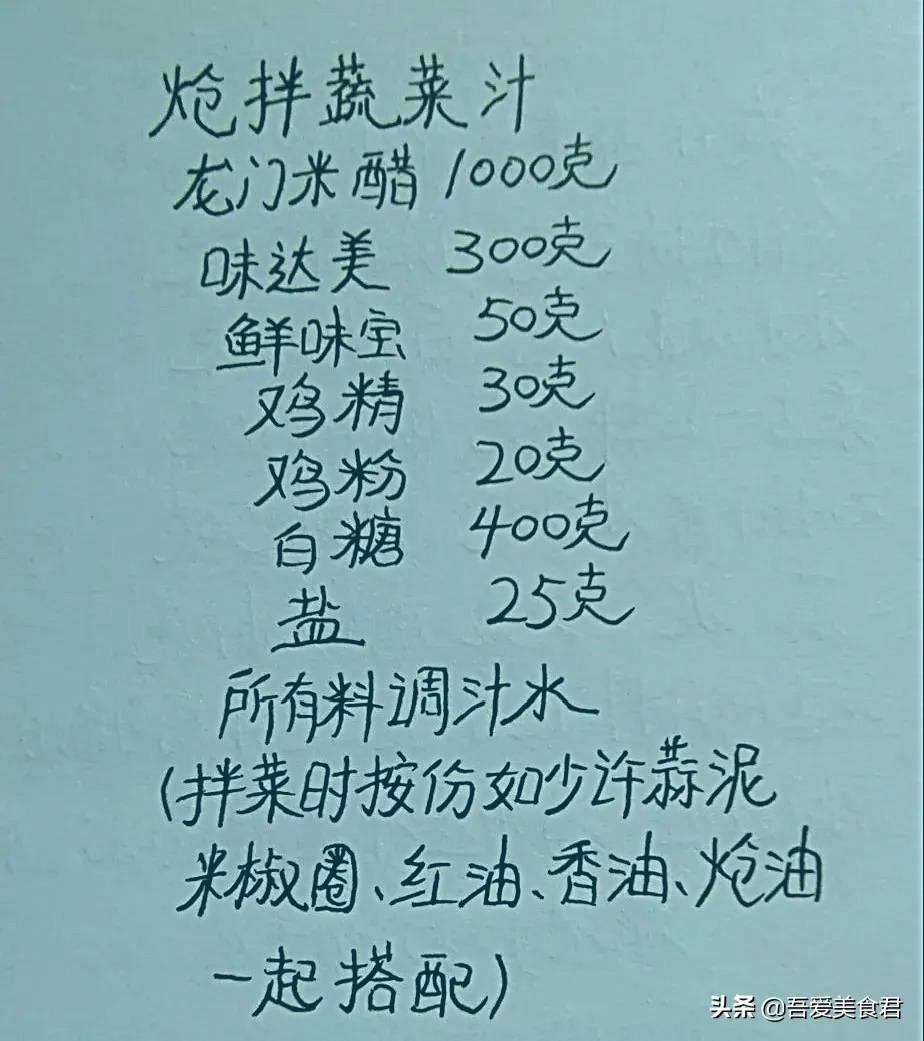 炝拌蔬菜汁
龙门米醋 1000克
味达美 300克
鲜味宝 50克
鸡精 30克
鸡粉 20克
白糖 400克
盐 25克
所有料调汁水
(拌菜时按份如少许蒜泥
米椒圈、红油、香油、炝油
一起搭配)
头条 @吾爱美食君